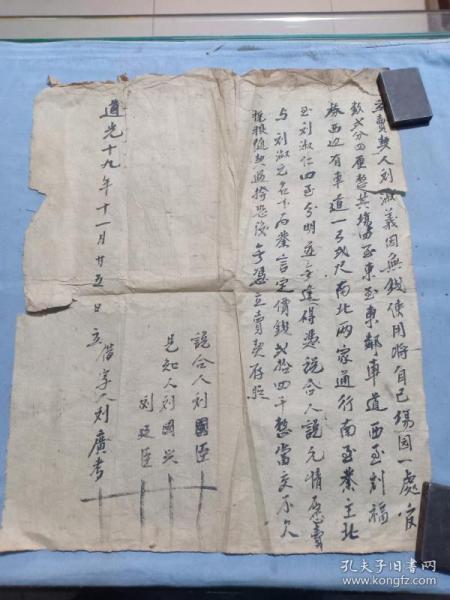 立賣契人刘淑義因無錢使用將自己場园一處官
数弍分四厘整其塲四至東至車輒車道西至刘福
春西边有車道一弓弍尺南北両家通行南至業主北
至刘淑仁四至分明並無違碍憑説合人説允情愿賣
与刘淑元名下為業言定價錢弍拾四千整當交不欠
粮随契過
恐後無憑立賣契存照
説合人刘國臣
見知人刘國興
刘廷臣
道光十九年十一月廿五日立
借字人刘廣孝
孔夫子旧书网
www.kongfz.com